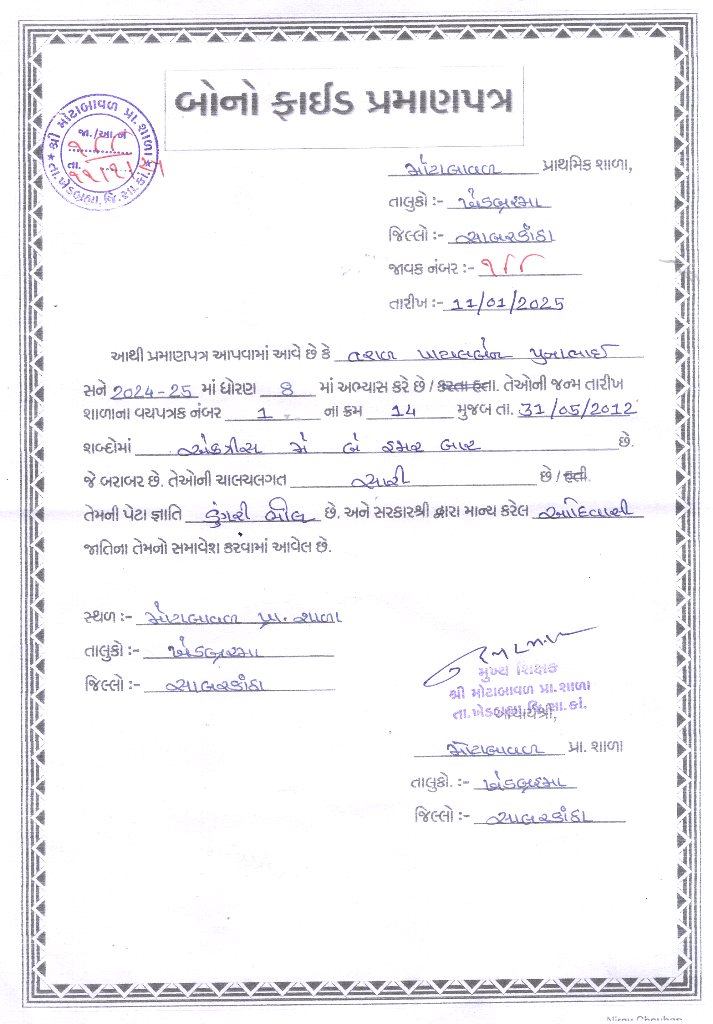 બોનો ફાઈડ પ્રમાણપત્ર
શ્રી મોટાબાવળ પ્રા. શાળા
જા./આ.નં
૧૮૮
તા.
તા.ખેડબ્રહ્મા, જિ.સા.કાં.
મોટાબાવળ પ્રાથમિક શાળા,
તાલુકો :- ખેડબ્રહ્મા
જિલ્લો :- સાબરકાંઠા
જાવક નંબર :- ૧૮૮
તારીખ :- 11/01/2025
આથી પ્રમાણપત્ર આપવામાં આવે છે કે તરાળ પાયલબેન પુનાભાઈ
સને 2024-25 માં ધોરણ 8 માં અભ્યાસ કરે છે / કરતા હતા. તેઓની જન્મ તારીખ
શાળાના વયપત્રક નંબર 1 ના ક્રમ 14 મુજબ તા. 31/05/2012
શબ્દોમાં એકત્રીસ મે બે હજાર બાર છે.
જે બરાબર છે. તેઓની ચાલચલગત સારી છે / હતી.
તેમની પેટા જ્ઞાતિ ડુંગરી ભીલ છે. અને સરકારશ્રી દ્વારા માન્ય કરેલ આદિવાસી
જાતિના તેમનો સમાવેશ કરવામાં આવેલ છે.
સ્થળ :- મોટાબાવળ પ્રા. શાળા
તાલુકો :- ખેડબ્રહ્મા
જિલ્લો :- સાબરકાંઠા
મુખ્ય શિક્ષક
શ્રી મોટાબાવળ પ્રા.શાળા
તા.ખેડબ્રહ્મા, જિ.સા.કાં.
આચાર્યશ્રી,
મોટાબાવળ પ્રા. શાળા
તાલુકો. :- ખેડબ્રહ્મા
જિલ્લો :- સાબરકાંઠા